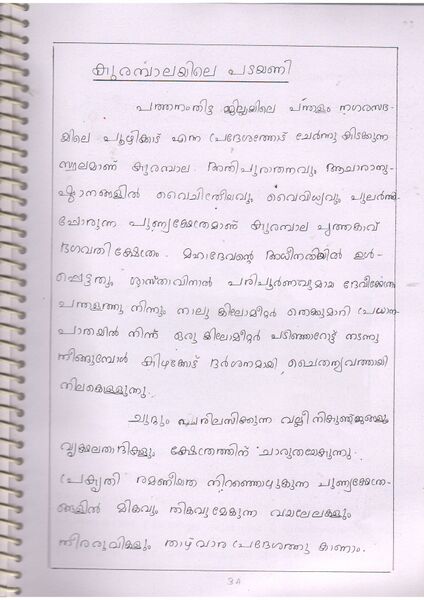 കുരമ്പാലയിലെ പടയണി
പത്തനംതിട്ട ജില്ലയിലെ പന്തളം നഗരസഭ-
യിലെ പൂഴിക്കാട് എന്ന പ്രദേശത്തോട് ചേർന്നു കിടക്കുന്ന
സ്ഥലമാണ് കുരമ്പാല. അതിപുരാതനവും, ആചാരാനു-
ഷ്ഠാനങ്ങളിൽ വൈചിത്ര്യവും, വൈവിധ്യവും പുലർത്തി
പോരുന്ന പുണ്യക്ഷേത്രമാണ് കുരമ്പാല പുത്തൻകാവ്
ഭഗവതി ക്ഷേത്രം. മഹാദേവന്റെ അധീനതയിൽ ഉൾ-
പ്പെട്ടതും, ശാസ്താവിനാൽ പരിപൂർണവുമായ ദേവീക്ഷേത്രം
പന്തളത്തു നിന്നും നാലു കിലോമീറ്റർ തെക്കുമാറി പ്രധാന
പാതയിൽ നിന്ന് ഒരു കിലോമീറ്റർ പടിഞ്ഞാറോട്ട് നടന്നു
നീങ്ങുമ്പോൾ കിഴക്കോട് ദർശനമായി ചൈതന്യവത്തായി
നിലകൊള്ളുന്നു.
ചുറ്റും പരിലസിക്കുന്ന വല്ലീനികുഞ്ജങ്ങളും,
വൃക്ഷലതാദികളും, ക്ഷേത്രത്തിന് ചാരുതയേകുന്നു.
പ്രകൃതി രമണീയത നിറഞ്ഞൊഴുകുന്ന പുണ്യക്ഷേത്ര-
ങ്ങളിൽ മികവും തികവുമേകുന്ന വയലേലകളും
നീരരുവികളും താഴ്വാര പ്രദേശത്തു കാണാം.
3A